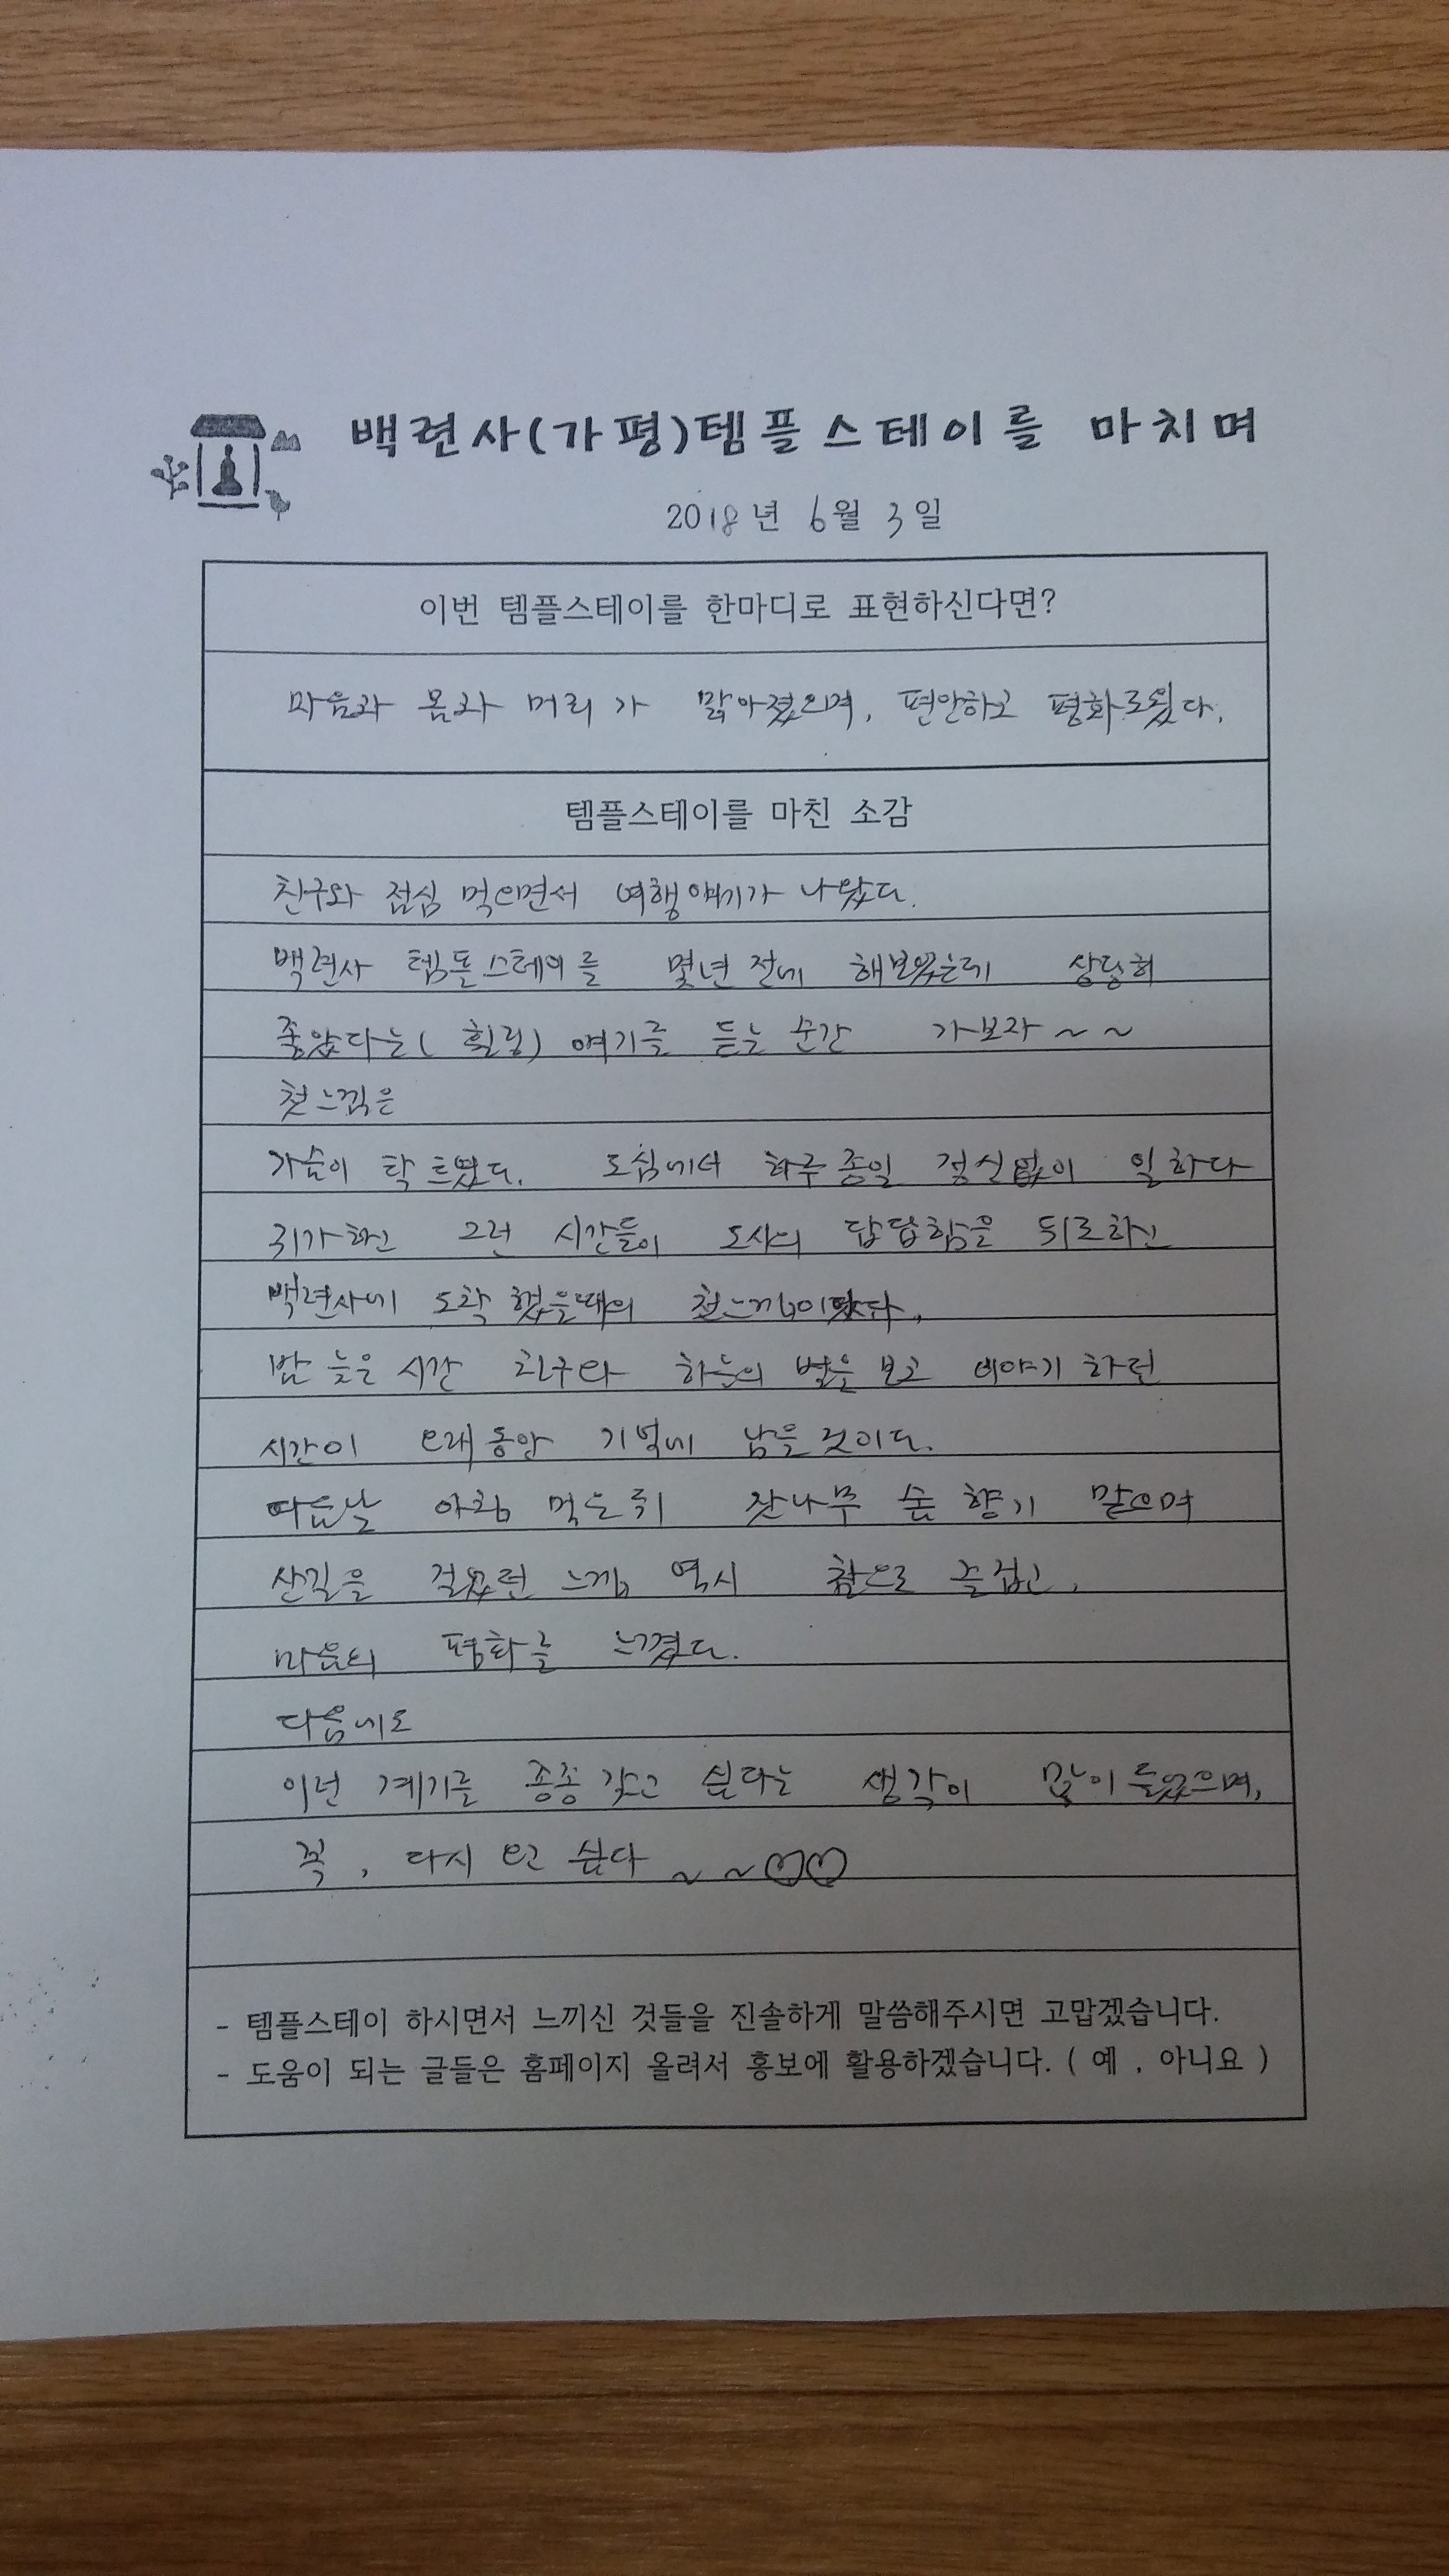 백련사(가평)템플스테이를 마치며
2018년 6월 3일
이번 템플스테이를 한마디로 표현하신다면?
마음과 몸과 머리가 맑아졌으며, 편안하고 평화로웠다.
템플스테이를 마친 소감
친구와 점심 먹으면서 여행얘기가 나왔다.
백련사 템플스테이를 몇년전에 해보았는데 상당히
좋았다는( 힐링) 얘기를 듣는 순간 가보자~~
첫느낌은
가슴이 탁 트였다. 도심에서 하루종일 정신없이 일하다
귀가하고 그런 시간들이 도시의 답답함을 뒤로하고
백련사에 도착했을때의 첫느낌이었다.
밤 늦은 시간 친구와 하늘의 별을 보고 이야기 하던
시간이 오래동안 기억에 남을 것이다.
다음날 아침 먹은 뒤 잣나무 숲 향기 맡으며
산길을 걸었던 느낌 역시 참으로 즐겁고,
마음의 평화를 느꼈다.
다음에도
이런 계기를 종종 갖고 싶다는 생각이 많이 들었으며,
꼭, 다시 오고 싶다~~♡♡
- 템플스테이 하시면서 느끼신 것들을 진솔하게 말씀해주시면 고맙겠습니다.
- 도움이 되는 글들은 홈페이지 올려서 홍보에 활용하겠습니다. ( 예 , 아니요 )